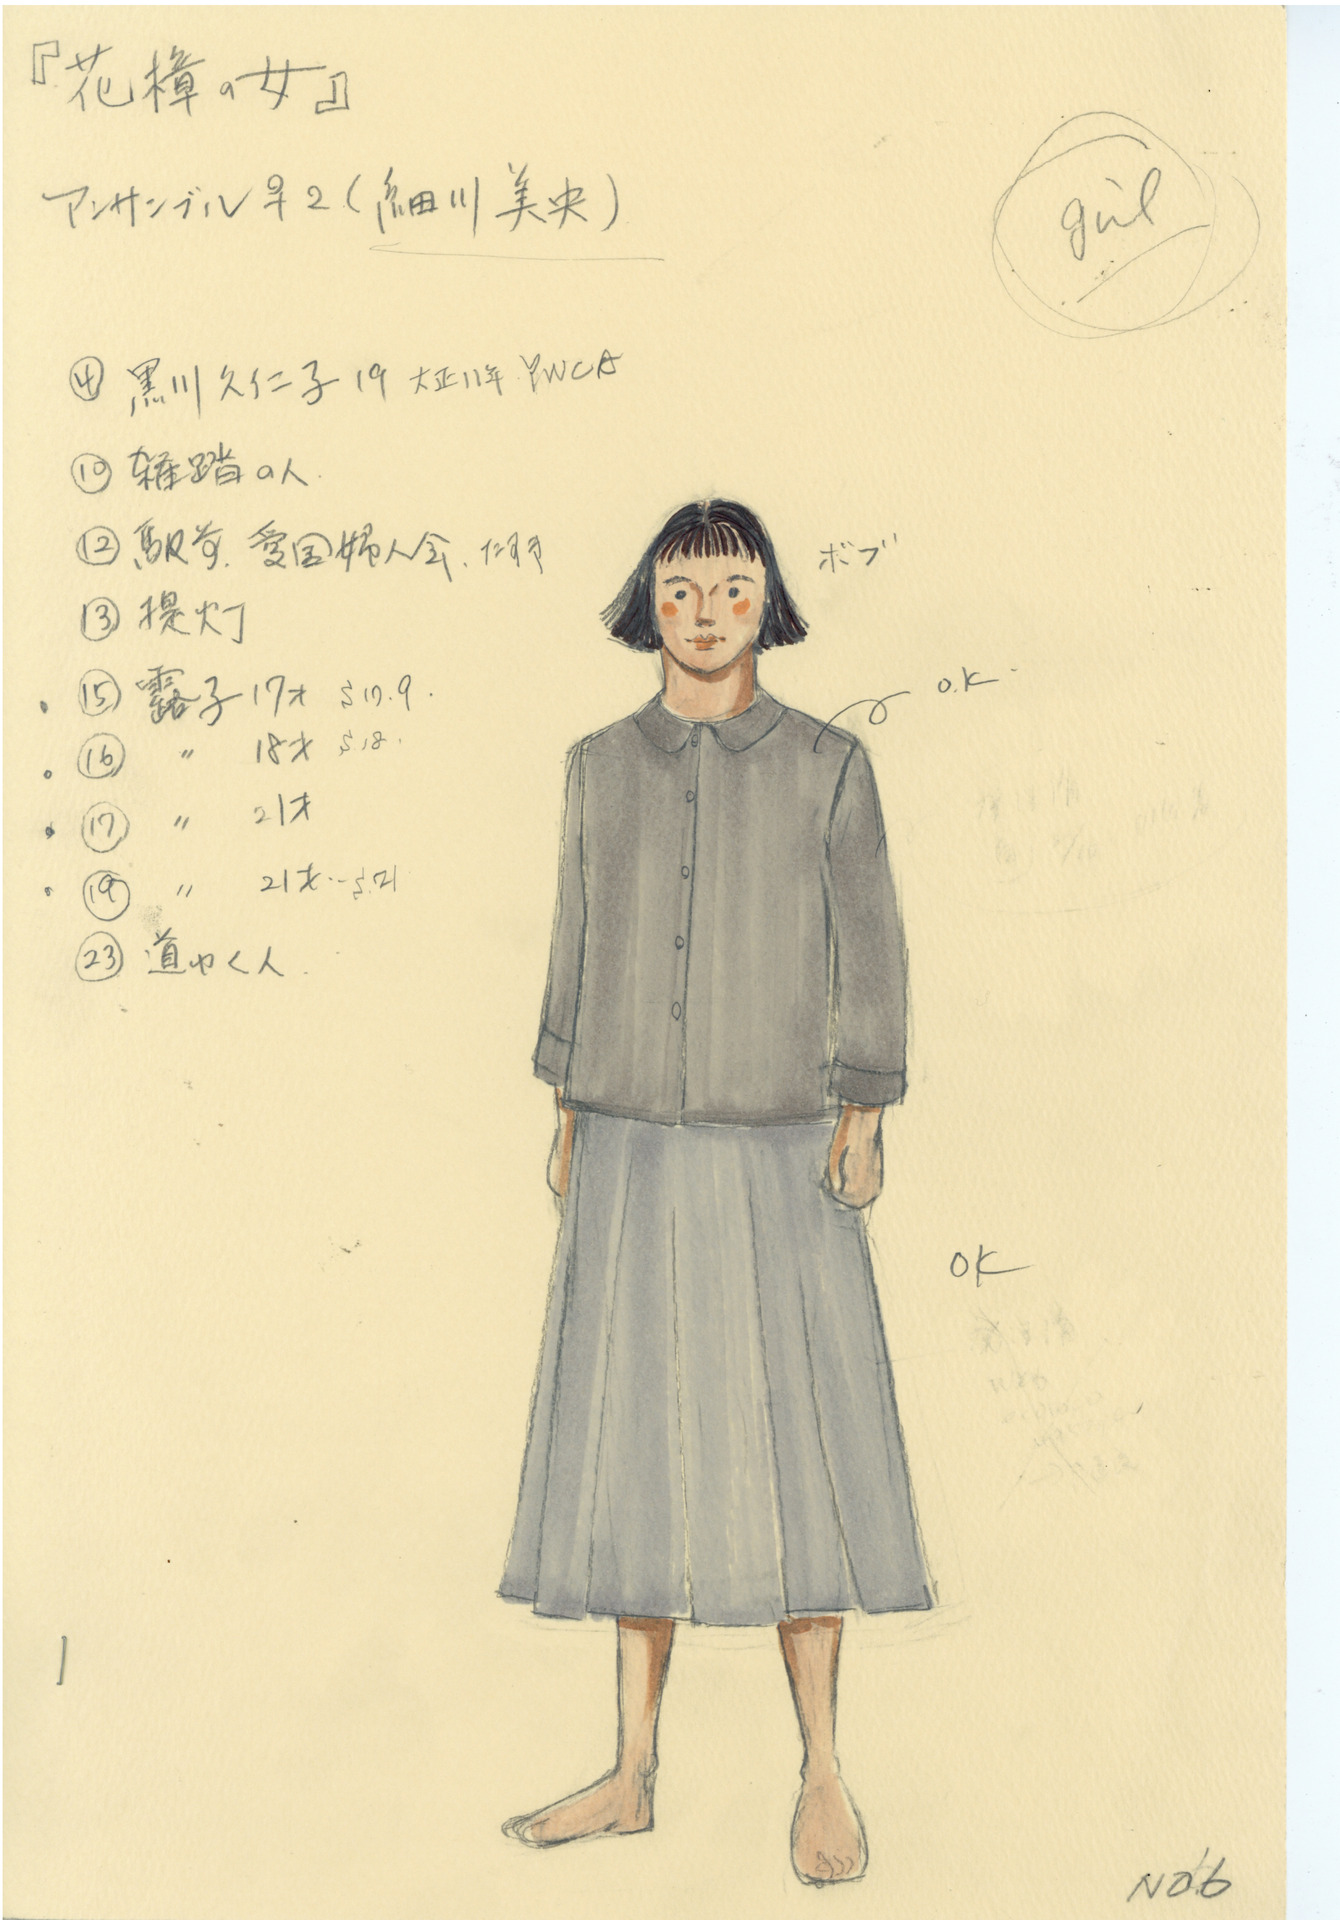 『花樟の女』
アンサンブル♀2(細川美央)
girl
④ 黒川久仁子 19 大正11年 YWCA
⑩ 雑踏の人
⑫ 駅前、愛国婦人会、たすき
⑬ 提灯
ボブ
・⑮ 露子 17才 S17.9.
・⑯ 〃 18才 S18.
・⑰ 〃 21才
・⑲ 〃 21才…S.21
㉓ 道ゆく人
O.K
OK
1
NO.6